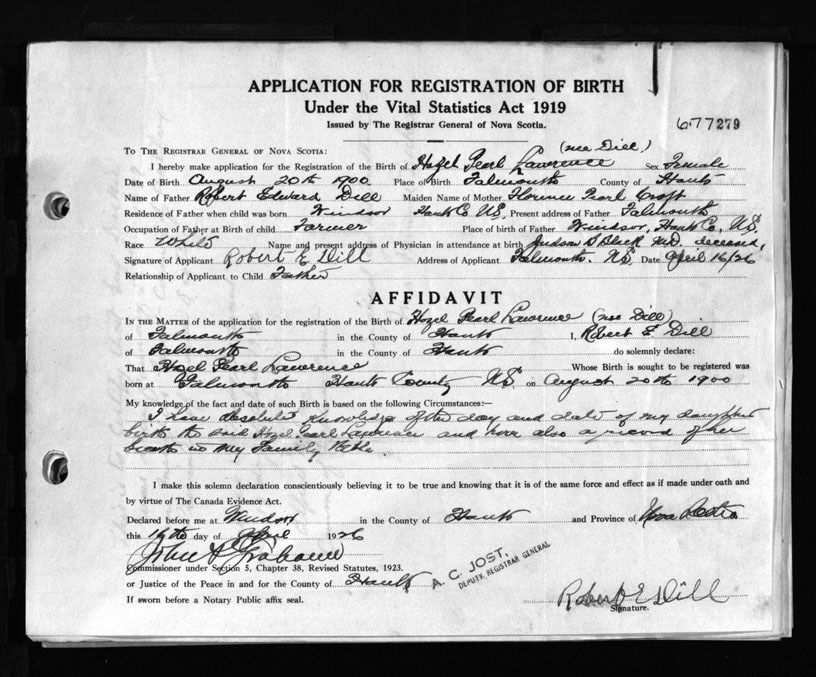 APPLICATION FOR REGISTRATION OF BIRTH
Under the Vital Statistics Act 1919
Issued by The Registrar General of Nova Scotia.
677279
TO THE REGISTRAR GENERAL OF NOVA SCOTIA: (nee Dill)
I hereby make application for the Registration of the Birth of Hazel Pearl Lawrence Sex Female
Date of Birth August 20th 1900 Place of Birth Falmouth County of Hants
Name of Father Robert Edward Dill Maiden Name of Mother Florence Pearl Croft
Residence of Father when child was born Windsor Hants Co NS, Present address of Father Falmouth
Occupation of Father at Birth of child Farmer Place of birth of Father Windsor, Hants Co. NS.
Race White Name and present address of Physician in attendance at birth Judson B Black M.D. deceased,
Signature of Applicant Robert E Dill Address of Applicant Falmouth. NS. Date April 16/26
Relationship of Applicant to Child Father
AFFIDAVIT
IN THE MATTER of the application for the registration of the Birth of Hazel Pearl Lawrence (nee Dill)
of Falmouth in the County of Hants I, Robert E Dill
of Falmouth in the County of Hants do solemnly declare:
That Hazel Pearl Lawrence Whose Birth is sought to be registered was
born at Falmouth Hants County NS. on August 20th 1900
My knowledge of the fact and date of such Birth is based on the following Circumstances:—
I have absolute knowledge of the day and date of my daughters
birth the said Hazel Pearl Lawrence and have also a record of her
birth in my Family Bible.
I make this solemn declaration conscientiously believing it to be true and knowing that it is of the same force and effect as if made under oath and
by virtue of The Canada Evidence Act.
Declared before me at Windsor in the County of Hants and Province of Nova Scotia
this 16th day of April 1926
John
Commissioner under Section 5, Chapter 38, Revised Statutes, 1923.
or Justice of the Peace in and for the County of Hants
A. C. JOST,
DEPUTY REGISTRAR GENERAL
If sworn before a Notary Public affix seal.
Robert E Dill
Signature.